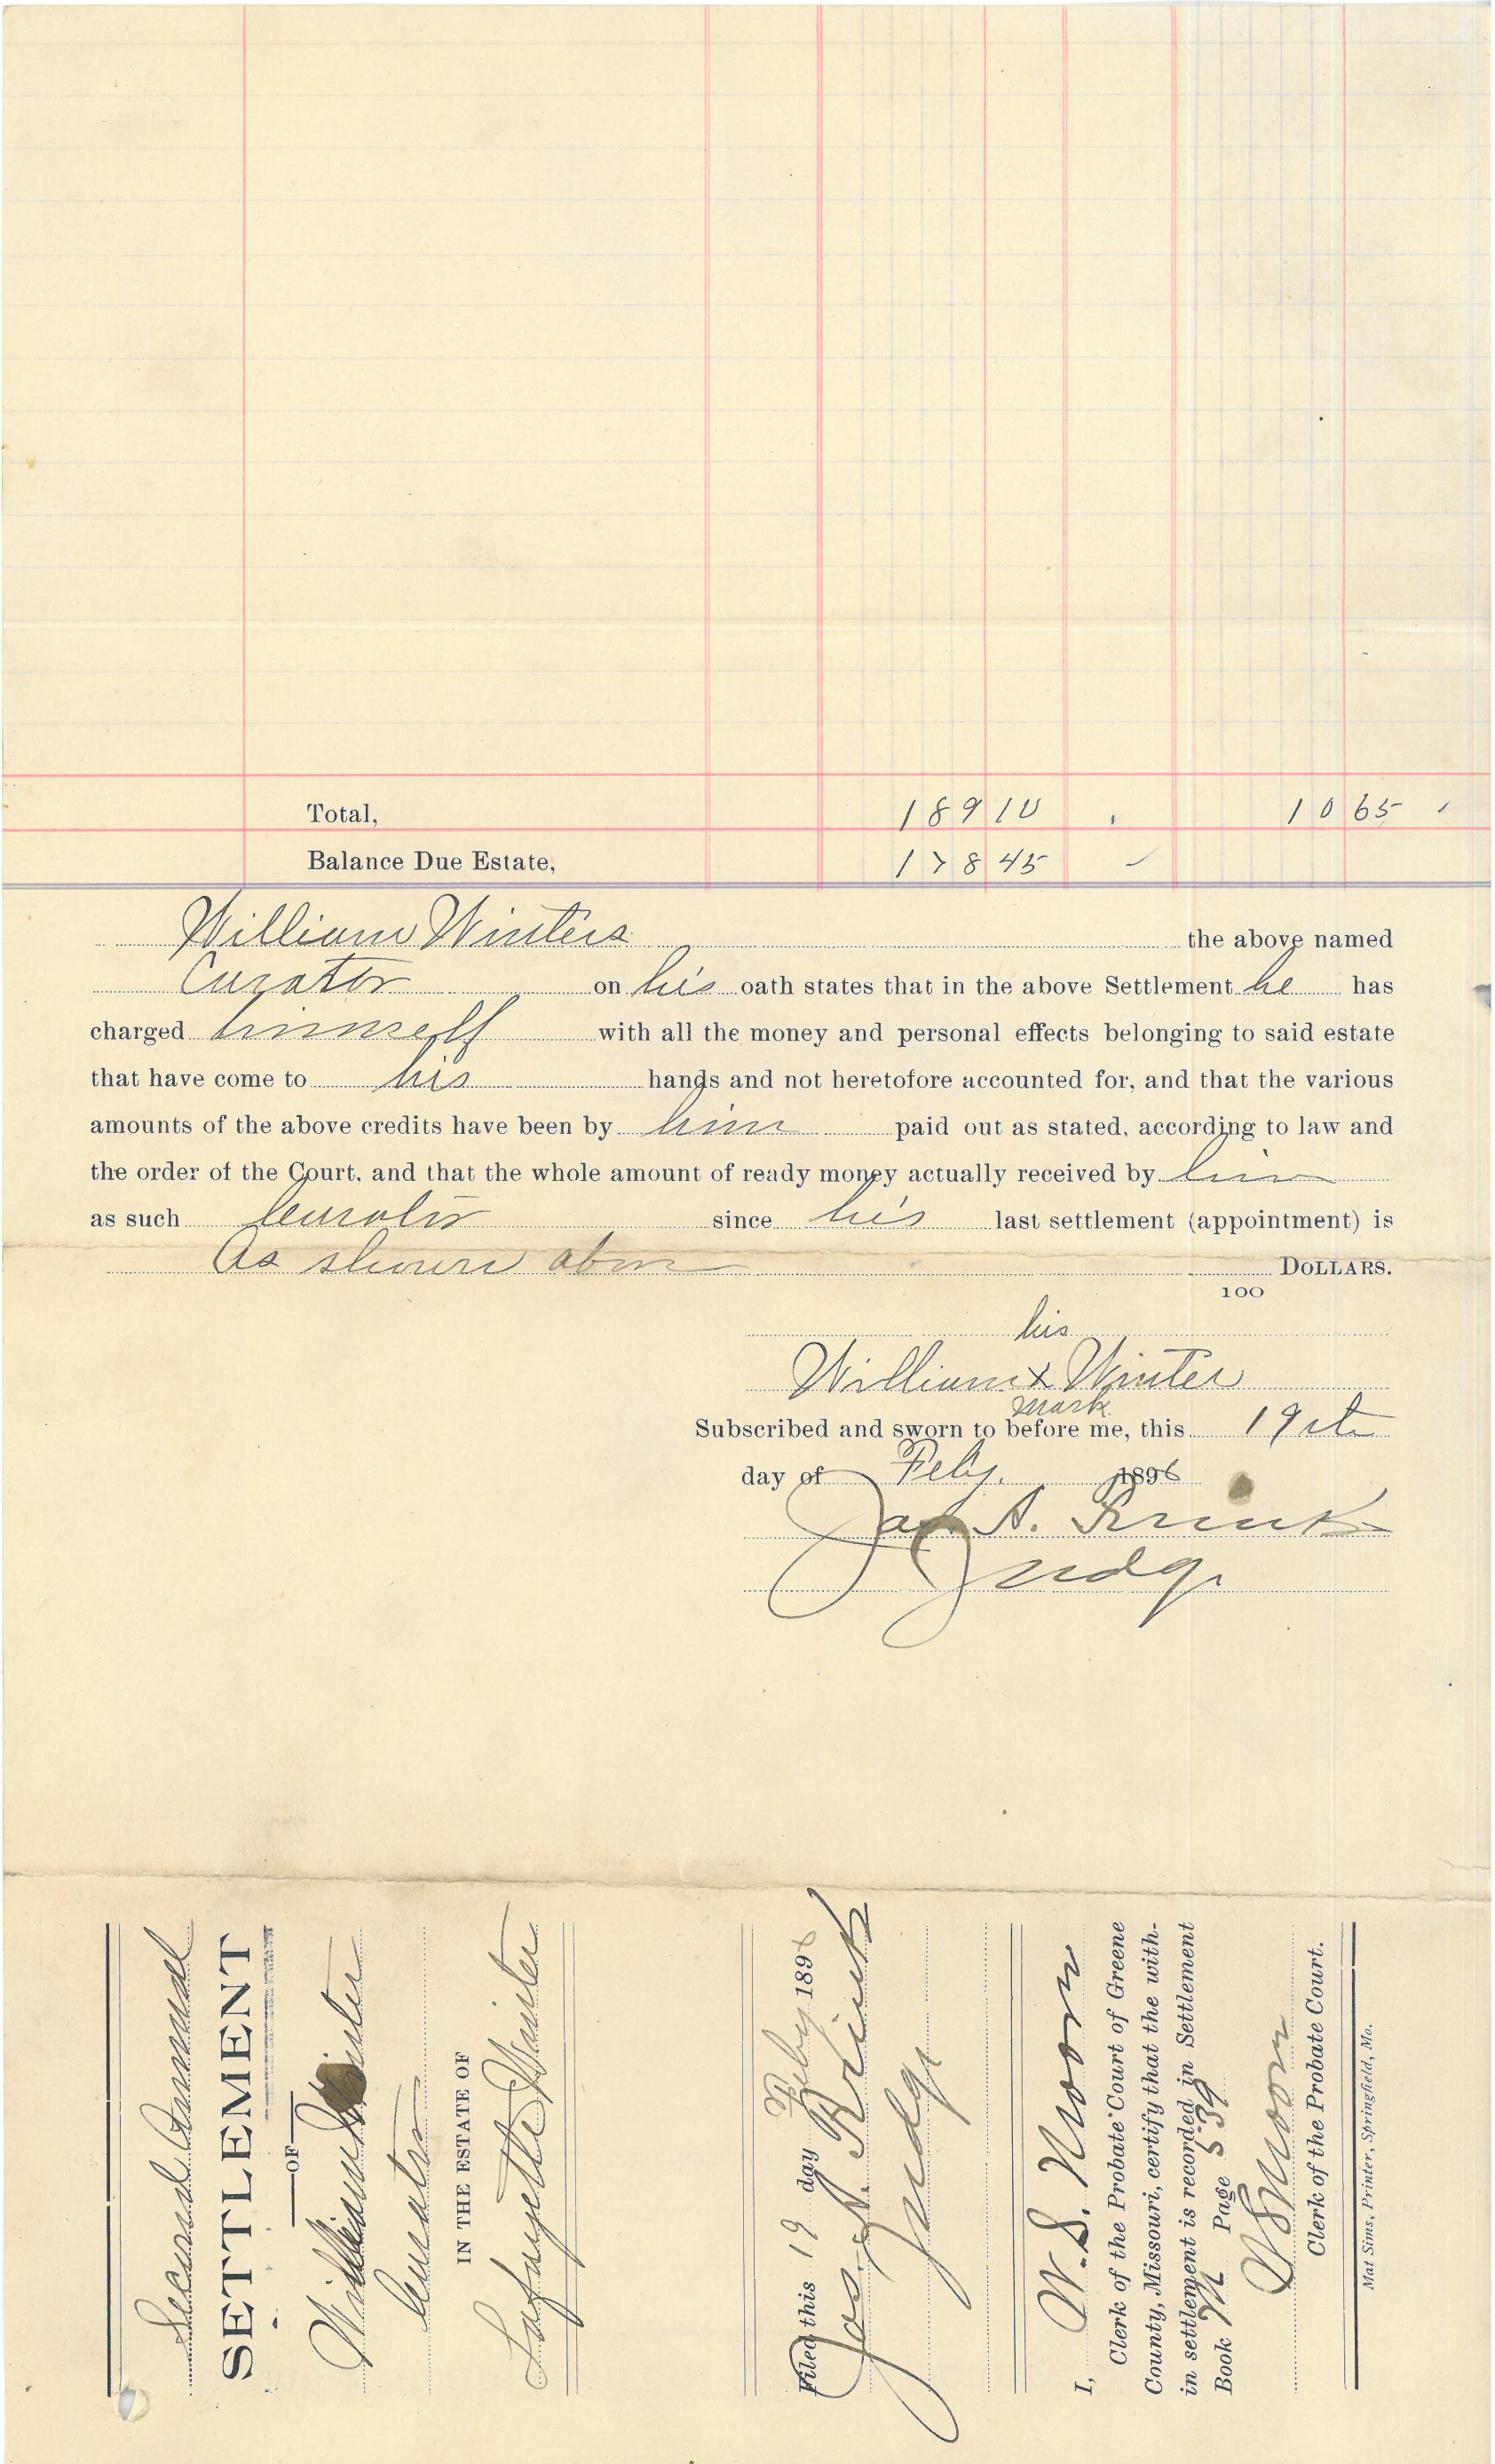 Total, 189 10 10 65
Balance Due Estate, 178 45
William Winters the above named
Curator on his oath states that in the above Settlement he has
charged himself with all the money and personal effects belonging to said estate
that have come to his hands and not heretofore accounted for, and that the various
amounts of the above credits have been by him paid out as stated, according to law and
the order of the Court, and that the whole amount of ready money actually received by him
as such Curator since his last settlement (appointment) is
As shown above DOLLARS.
100
his
William x Winter
mark
Subscribed and sworn to before me, this 19th
day of Feby. 1896
Jas. A. Brink
Judge
Second Annual
SETTLEMENT
OF
William Winter
Curator
IN THE ESTATE OF
Lafayette Winter
Filed this 19 day Feby 1896
Jas. A. Brink
Judge
I, W. S. Moon
Clerk of the Probate Court of Greene
County, Missouri, certify that the with-
in settlement is recorded in Settlement
Book M Page 539
W S Moon
Clerk of the Probate Court.
Mat Sims, Printer, Springfield, Mo.